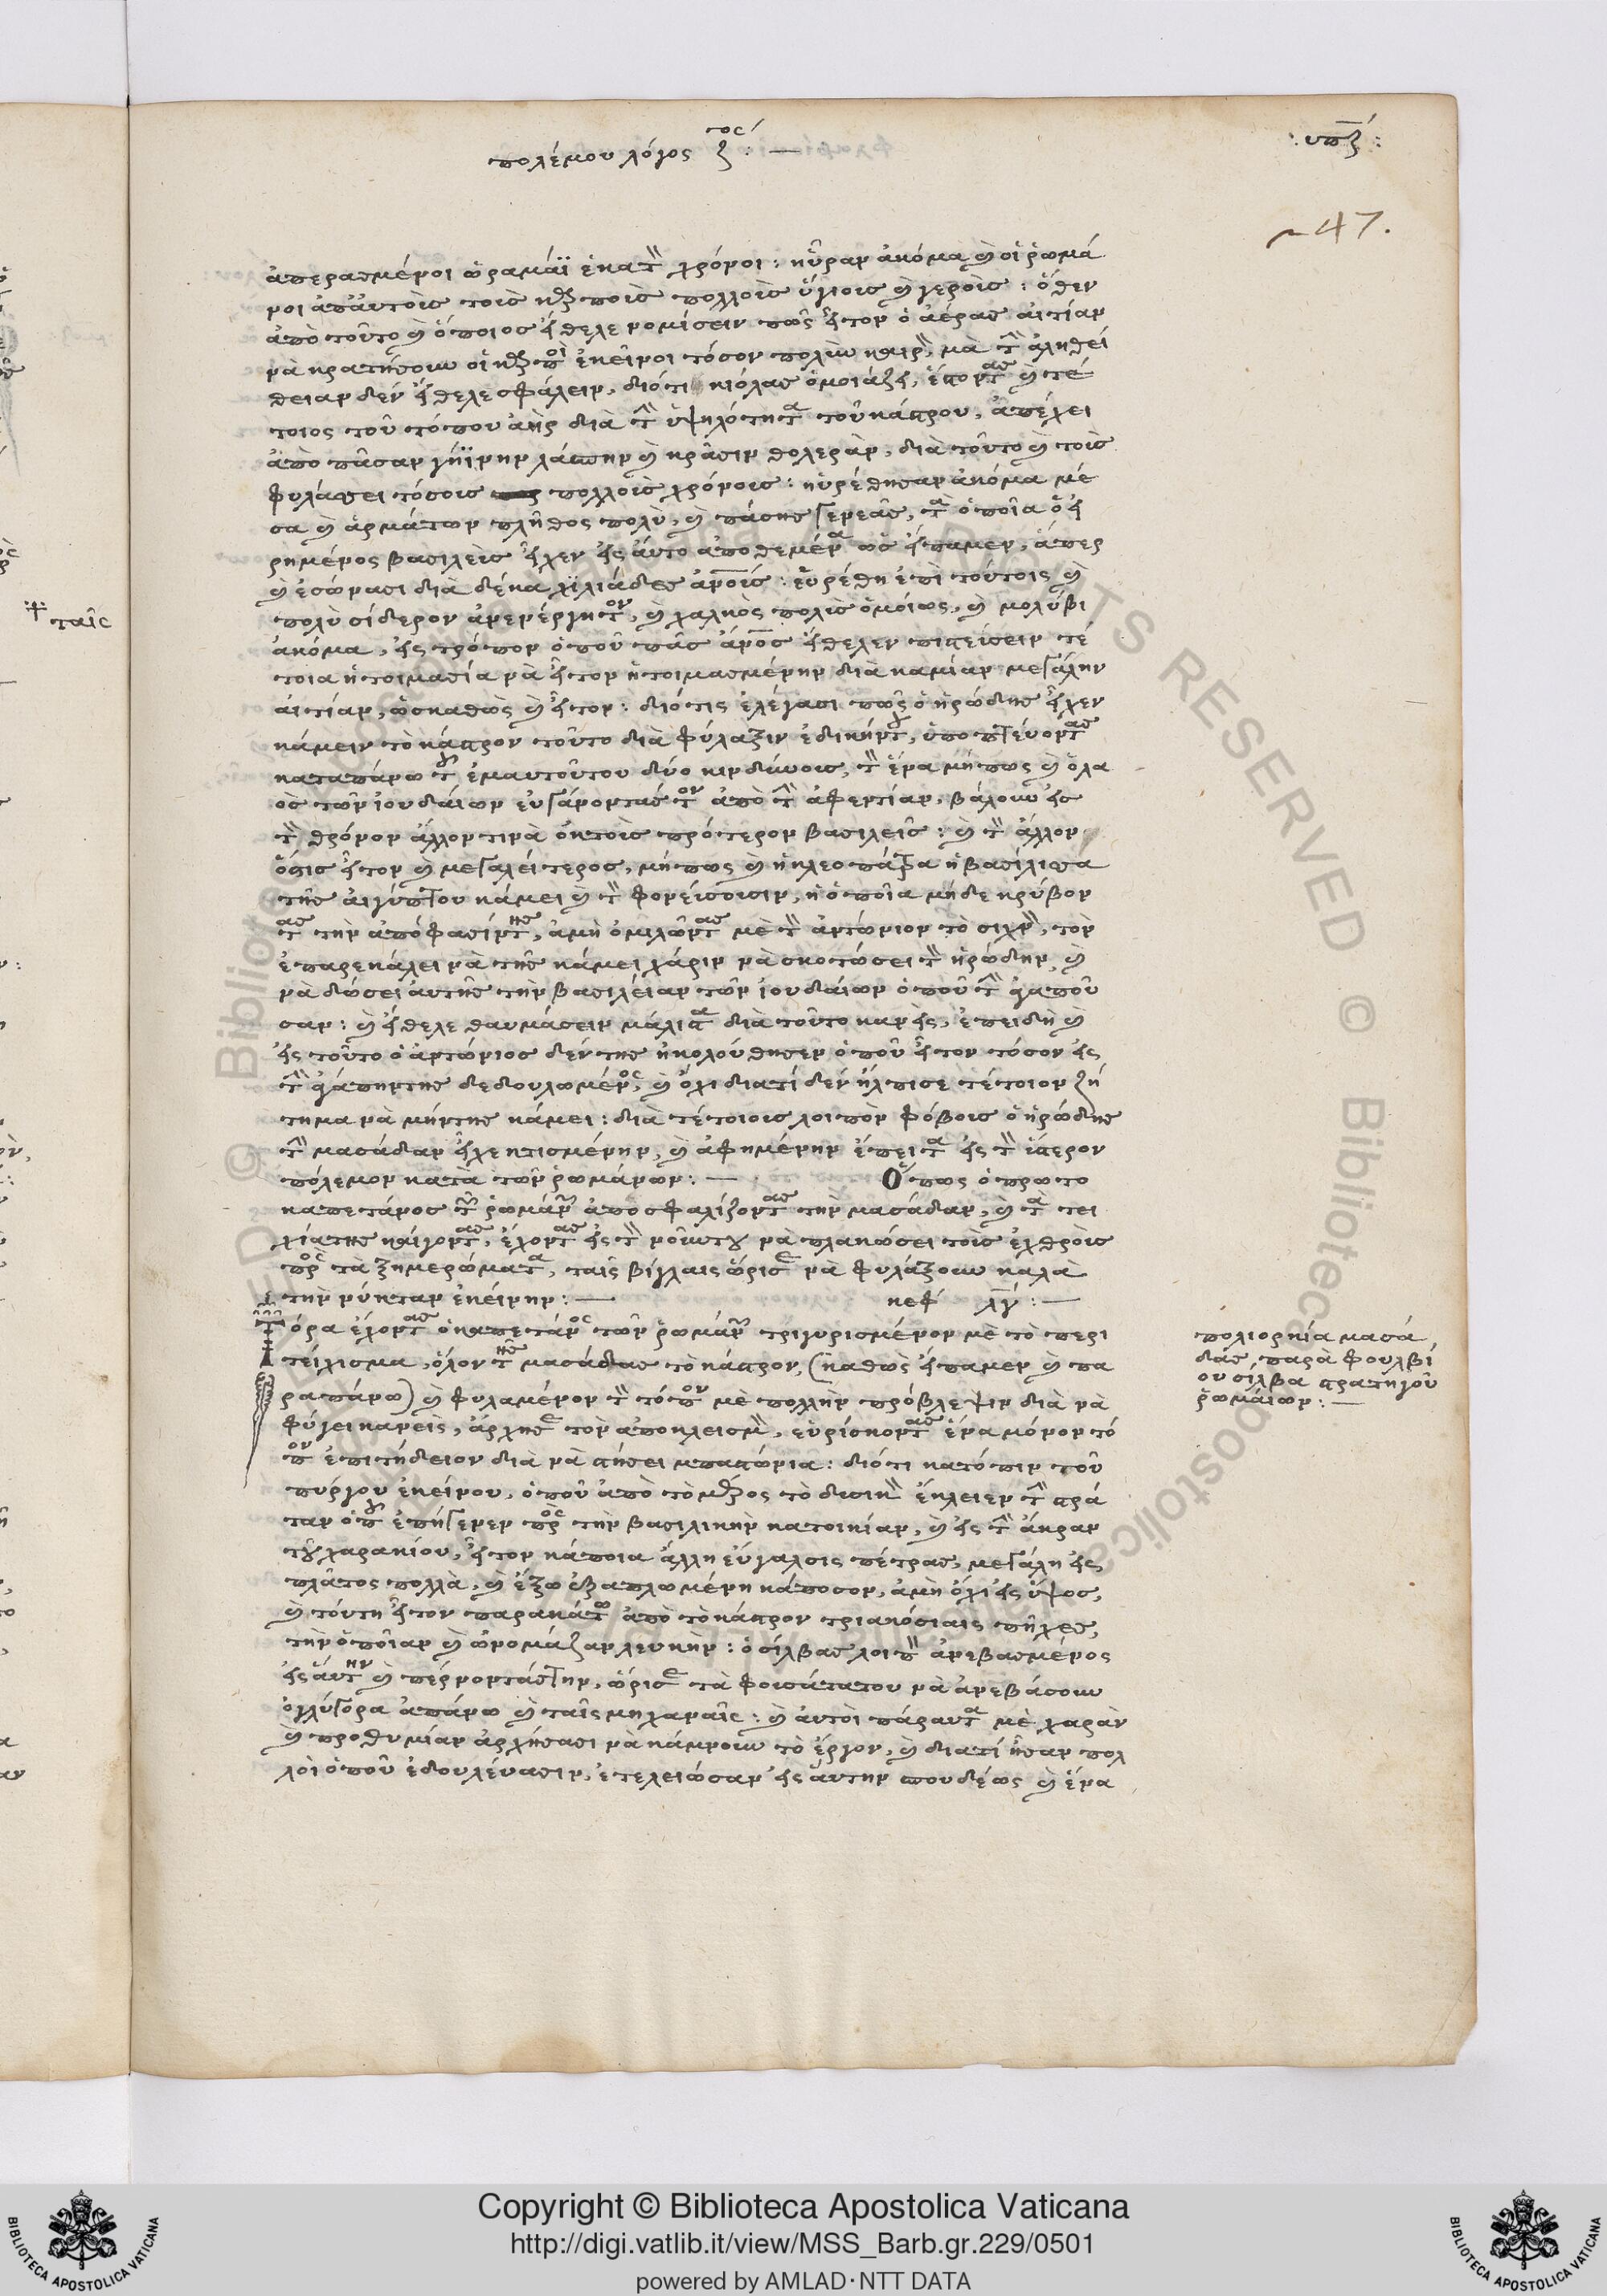 πολέμου λόγος ζ τος :—
:υπζ:
47.
ἀπερασμένοι ὡραμάϊ ἑκατὸν χρόνοι: ηὗραν ἀκόμα καὶ οἱ ῥωμά
νοι ἀπ' αὐτοὺς τοὺς καρποὺς πολλοὺς ὕγιους καὶ γεροὺς: ὅθεν
ἀπὸ τοῦτο καὶ ὅποιος ἤθελε νομίσειν πῶς ἦτον ὁ ἀέρας αἰτίαν
νὰ κρατήσουν οἱ καρποὶ ἐκεῖνοι τόσον πολὺν καιρὸν, μὰ τὴν ἀλήθει
θειαν δὲν ἤθελε σφάλειν, διότι κιόλας ὁμοιάζει, ἔστοντας καὶ τέ
τοιος τοῦ τόπου ἀὴρ διὰ τὴν ὑψηλότητα τοῦ κάστρου, ἀπέχει
ἀπὸ πᾶσαν γήϊνην λάσπην καὶ κρᾶσιν θολερὰν, διὰ τοῦτο καὶ τοὺς
φυλάττει τόσους πολλοὺς χρόνους: ηὑρέθησαν ἀκόμα μέ
σα καὶ ἁρμάτων πλῆθος πολὺ, καὶ πάσης γενεᾶς, τὰ ὁποῖα ὁ εἰ
ρημένος βασιλεὺς εἶχεν εἰς αὐτο ἀποθεμένα ὡς εἴπαμεν, ἅπερ
καὶ ἐσώνασι διὰ δέκα χϊλιάδες ἀνοὺς: εὑρέθη ἐπὶ τούτοις καὶ
πολὺ σίδερον ἀνενέργητον, καὶ χαλκὸς πολὺς ὁμοίως, καὶ μολύβι
ἀκόμα, εἰς τρόπον ὁποῦ πᾶς ἄνος ἤθελεν πιστεύσειν τέ
τοια ἡτοιμασία νὰ ἦτον ἡτοιμασμένην διὰ καμίαν μεγάλην
αἰτίαν, ὡσκαθὼς καὶ ἦτον: διότις ἐλέγασι πῶς ὁ ἡρώδης εἶχεν
κάμειν τὸ κάστρον τοῦτο διὰ φύλαξιν ἐδικήντου, ὑποπτεύοντας
καταπάνω τοῦ ἐμαυτοῦτου δύο κινδύνους, τὸν ἕνα μήπως καὶ ὁ λα
ὸς τῶν ἰουδαίων εὐγάνοντάς τον ἀπὸ τὴν ἀφεντίαν, βάλουν εἰς
τὸν θρόνον ἄλλον τινὰ ἐκ τοὺς πρότερον βασιλεῖς: καὶ τὸν ἄλλον
ὅστις ἦτον καὶ μεγαλείτερος, μήπως καὶ ἡ κλεοπάτρα ἡ βασίλισσα
τῆς αἰγύπτου κάμει καὶ τὸν φονεύσουσιν, ἡ ὁποῖα μήδε κρύβον
τας τὴν ἀπόφασίντης, ἀμὴ ὁμιλῶντας μὲ τὸν ἀντώνιον τὸ συχνὸν, τὸν
ἐπαρεκάλει νὰ τῆς κάμει χάριν νὰ σκοτώσει τὸν ἡρώδην, καὶ
νὰ δώσει αὐτῆς τὴν βασιλείαν τῶν ἰουδαίων ὁποῦ τὴν ἀγαποῦ
σαν: καὶ ἤθελε θαυμάσειν μάλιστα διὰ τοῦτο κανεὶς, ἐπειδὴ καὶ
εἰς τοῦτο ὁ ἀντώνιος δέν της ἠκολούθησεν ὁποῦ ἦτον τόσον εἰς
τὴν ἀγάπηντης δεδουλωμένος, καὶ ὄχι διατί δὲν ἤλπισε τέτοιον ζή
τημα νὰ μήντης κάμει: διὰ τέτοιους λοιπὸν φόβους ὁ ἡρώδης
τὴν μασάδαν εἶχε κτισμένην, καὶ ἀφημένην ἔπειτα εἰς τὸν ὕστερον
πόλεμον κατὰ τῶν ῥωμάνων:—
Ὅπως ὁ πρωτο
καπετάνος τῶν ῥωμάνων ἀποσφαλίζοντας τὴν μασάδαν, καὶ τὰ τει
χίατης καίγοντας, ἔχοντας εἰς τὸν νοῦντου νὰ πλακώσει τοὺς ἐχθροὺς
πρὸς τὰ ξημερώματα, ταῖς βίγλαις ὥρισε νὰ φυλάξουν καλὰ
τὴν νύκταν ἐκείνην:—
κεφ λγ:—
Τόρα ἔχοντας ὁ καπετάνος τῶν ῥωμάνων τριγυρισμένον μὲ τὸ περι
τείχισμα, ὅλον τῆς μασάδας τὸ κάστρον, (καθὼς εἴπαμεν καὶ πα
ραπάνω) καὶ φυλαμένον τὸν τόπον μὲ πολλὴν πρόβλεψιν διὰ νὰ
φύγει κανεὶς, ἄρχησε τὸν ἀποκλεισμὸν, εὑρίσκοντας ἕνα μόνον τό
πον ἐπιτήδειον διὰ νὰ στήσει μπαστώνια: διότι κατόπιν τοῦ
πύργου ἐκείνου, ὁποῦ ἀπὸ τὸ μέρος τὸ δυσικὸν ἔκλειεν τὴν στρά
ταν ὁποῦ ἐπήγενεν πρὸς τὴν βασιλικὴν κατοικίαν, καὶ εἰς τὴν ἄκραν
τοῦ χαρακίου, ἦτον κάποια ἄλλη εὔγαλσις πέτρας, μεγάλη εἰς
πλᾶτος πολλὰ, καὶ ἔξω ἐξαπλωμένη κάποσον, ἀμὴ ὄχι εἰς ὕψος,
καὶ τούτη ἦτον παρακάτω ἀπὸ τὸ κάστρον τριακόσιαις πῆχες,
τὴν ὁποῖαν καὶ ὠνομάζαν λευκὴν: ὁ σίλβας λοιπὸν ἀνεβασμένος
εἰς αὐτὴν καὶ πέρνοντάς την, ὥρισε τὰ φουσάτατου νὰ ἀνεβάσουν
ὀγλύγορα ἀπάνω καὶ ταῖς μηχαναῖς: καὶ αὐτοὶ πάραυτα μὲ χαρὰν
καὶ προθυμίαν ἀρχήσασι νὰ κάμνουν τὸ ἔργον, καὶ διατί ἦσαν πολ
λοὶ ὁποῦ ἐδουλεύασιν, ἐτελειώσαν εἰς αὐτὴν σπουδέως καὶ ἕνα
πολιορκία μασά
δας, παρὰ φουλβί
ου σίλβα στρατηγοῦ
ῥωμαίων:—
ταῖς
Copyright © Biblioteca Apostolica Vaticana
http://digi.vatlib.it/view/MSS_Barb.gr.229/0501
powered by AMLAD·NTT DATA